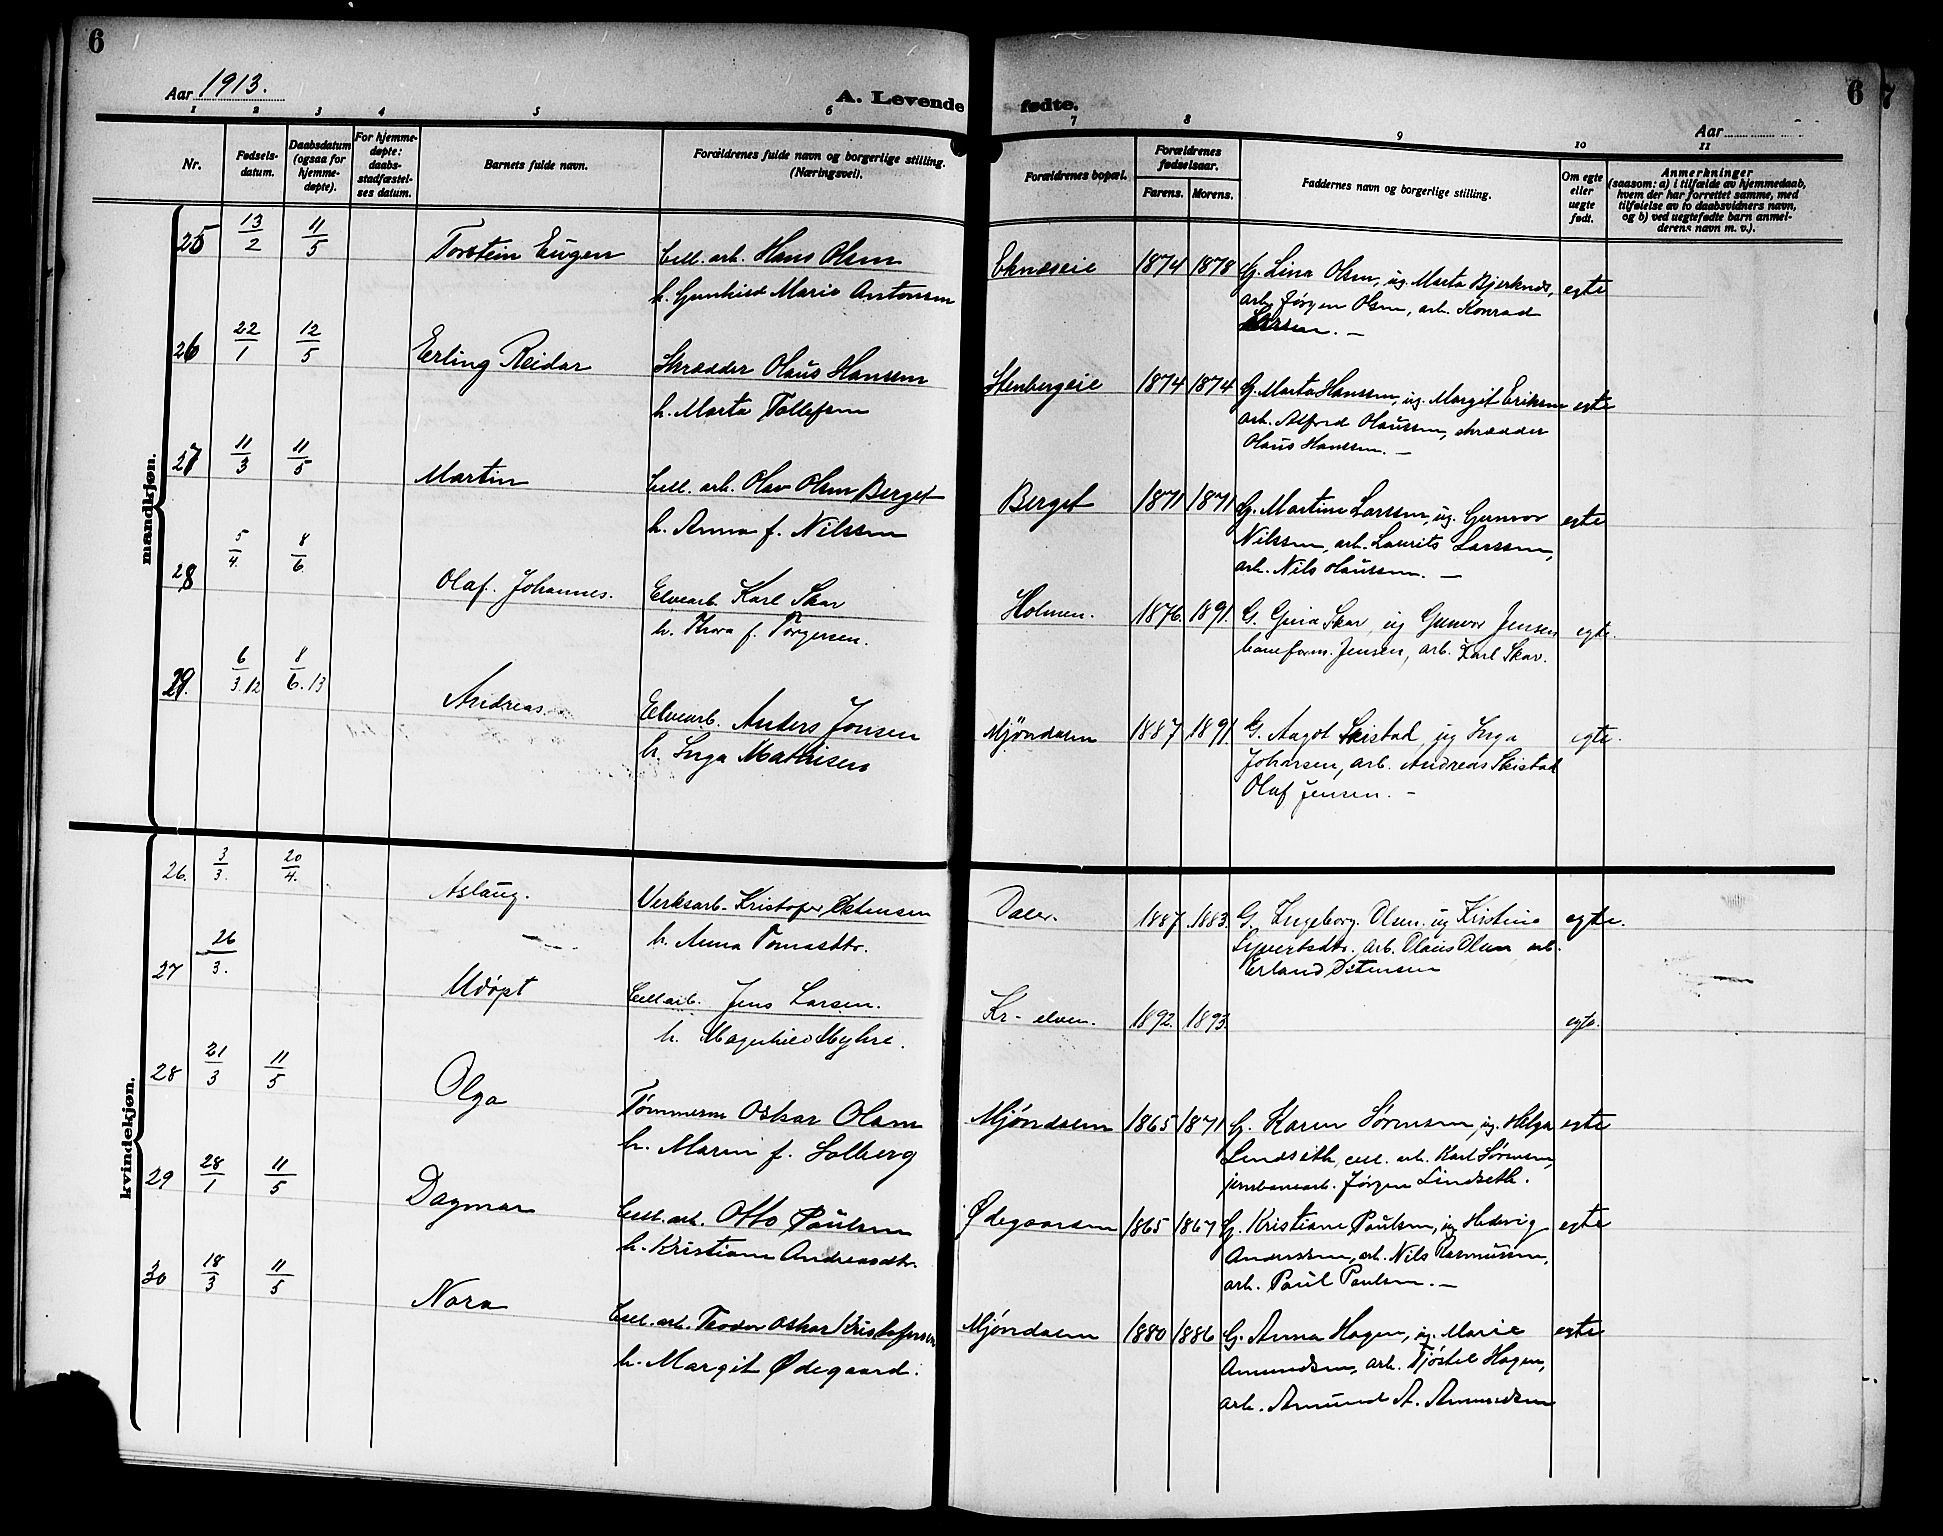 6
Aar 1913.
A. Levende fødte.
6
7
Aar
1 2 3 4 5 6 7 8 9 10 11
Nr.
Fødsels-
datum.
Daabsdatum
(ogsaa for
hjemme-
døpte).
For hjemme-
døpte:
daabs-
stadfæstel-
ses datum.
Barnets fulde navn.
Forældrenes fulde navn og borgerlige stilling.
(Næringsvei).
Forældrenes bopæl.
Forældrenes
fødselsaar.
Farens. Morens.
Faddernes navn og borgerlige stilling.
Om egte
eller
uegte
født.
Anmerkninger
(saasom: a) i tilfælde av hjemmedaab,
hvem der har forrettet samme, med
tilføielse av to daabsvidners navn,
og b) ved uegtefødte barn anmel-
derens navn m. v.).
mandkjøn.
25 13/2 11/5 Torstein Eugen Cell. arb. Hans Olsen
h. Gunhild Marie Antonsen
Eknæseie 1874 1878 G. Lina Olsen, ug. Marta Bjerknes, egte
arb. Jørgen Olsen, arb. Konrad
Larsen. —
26 22/1 12/5 Erling Reidar Skrædder Olaus Hansen
h. Marta Tollefsen
Stenbergeie 1874 1874 G. Marta Hanssen, ug. Margit Eriksen egte
arb. Alfred Olaussen, skrædder
Olaus Hanssen. —
27 11/3 11/5 Martin Cell. arb. Olav Olsen Berget
h. Anna f. Nilssen
Berget 1871 1871 G. Martine Larssen, ug. Gunvor egte
Nilssen, arb. Laurits Larssen,
arb. Nils Olaussen. —
28 5/4. 8/6. Olaf. Johannes. Elvearb. Karl Skar
h. Thora f. Torgersen.
Holmen. 1876. 1891. G. Gina Skar, ug Gunvor Jensen egte.
baneform. Jensen, arb. Karl Skar.
29. 6/3.12 8/6.13 Andreas. Elvearb. Anders Jonsen
h. Inga Mathisen
Mjøndalen 1887 1891. G. Aagot Skistad, ug Inga egte.
Johansen, arb. Andreas Skistad
Olaf Jensen. —
kvindekjøn.
26. 3/3. 20/4. Aslaug. Verksarb. Kristofer Østensen
h. Anna Tomasdtr.
Daler. 1887. 1883. G. Ingeborg Olsen. ug Kristine egte.
Syvertsdtr. arb. Olaus Olsen arb.
Erland Østensen
27 26/3. Udøpt Cellarb. Jens Larsen.
h. Magnhild Myhre.
Kr-elven. 1892. 1893. egte.
28 21/3 11/5 Olga Tømmerm Oskar Olsen
h. Maren f. Solberg
Mjøndalen 1865 1871 G. Karen Sørensen, ug. Helga egte
Lindseth, cell. arb. Karl Sørensen,
jernbanearb. Jørgen Lindseth.
29 28/1 11/5 Dagmar Cell. arb. Otto Paulsen
h. Kristiane Andreasdtr.
Ødegaarden 1865 1867 G. Kristiane Paulsen, ug Hedvig egte
Anderssen, arb. Nils Rasmussen,
arb. Paul Paulsen. —
30 18/3 11/5 Nora Cell. arb. Teodor Oskar Kristofersen
h. Margit Ødegaard.
Mjøndalen 1880 1886 G. Anna Hagen, ug. Marie egte
Amundsen, arb. Tjøstel Hagen,
arb. Amund A. Amundsen